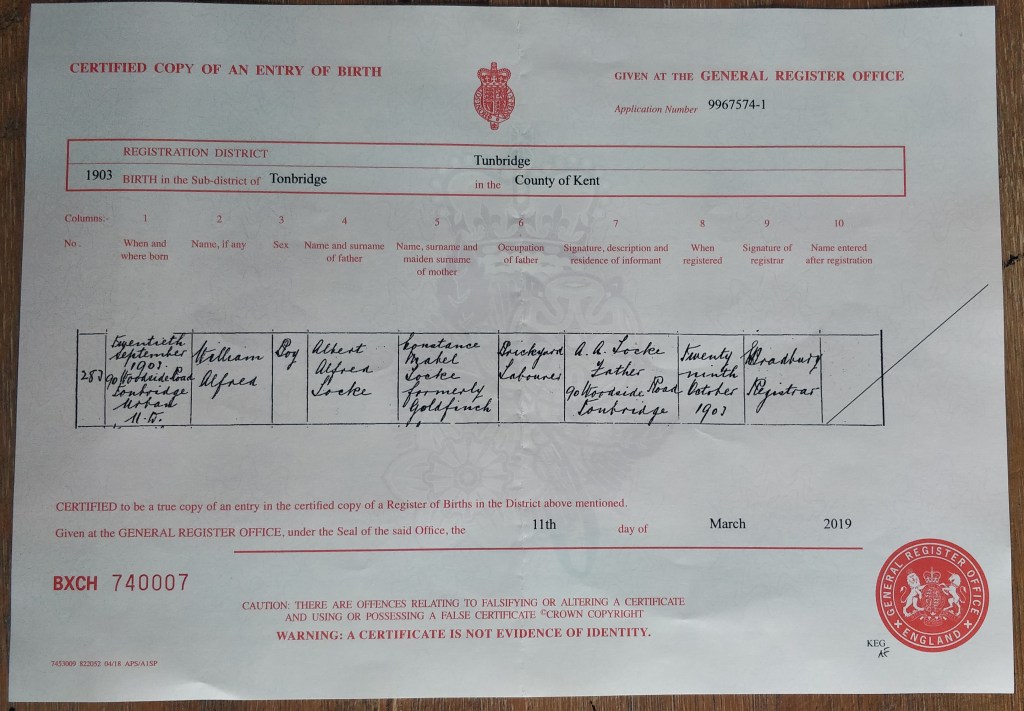 CERTIFIED COPY OF AN ENTRY OF BIRTH
GIVEN AT THE GENERAL REGISTER OFFICE
Application Number 9967574-1
REGISTRATION DISTRICT Tunbridge
1903 BIRTH in the Sub-district of Tonbridge in the County of Kent
Columns:- 1 2 3 4 5 6 7 8 9 10
No. When and where born Name, if any Sex Name and surname of father Name, surname and maiden surname of mother Occupation of father Signature, description and residence of informant When registered Signature of registrar Name entered after registration
Twentieth
September
1903
90 Woodside Road
Tonbridge
Urban
U.D.
William
Alfred
Boy
Albert
Alfred
Locke
Constance
Mabel
Locke
formerly
Goldfinch
Brickyard
Labourer
A. A. Locke
Father
90 Woodside Road
Tonbridge
Twenty
ninth
October
1903
Bradbury
Registrar
CERTIFIED to be a true copy of an entry in the certified copy of a Register of Births in the District above mentioned.
Given at the GENERAL REGISTER OFFICE, under the Seal of the said Office, the 11th day of March 2019
BXCH 740007
CAUTION: THERE ARE OFFENCES RELATING TO FALSIFYING OR ALTERING A CERTIFICATE
AND USING OR POSSESSING A FALSE CERTIFICATE ©CROWN COPYRIGHT
WARNING: A CERTIFICATE IS NOT EVIDENCE OF IDENTITY.
GENERAL REGISTER OFFICE
ENGLAND
KEG
AF
7453009 822052 04/18 APS/A1SP